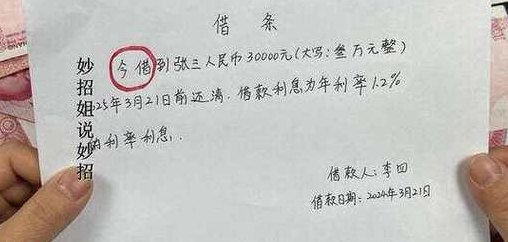 借条
今借到张三人民币30000元(大写:叁万元整)
25年3月21日前还清.借款利息为年利率1.2%
的利率利息.
借款人:李四
借款日期:2024年3月21日
妙招姐说妙招